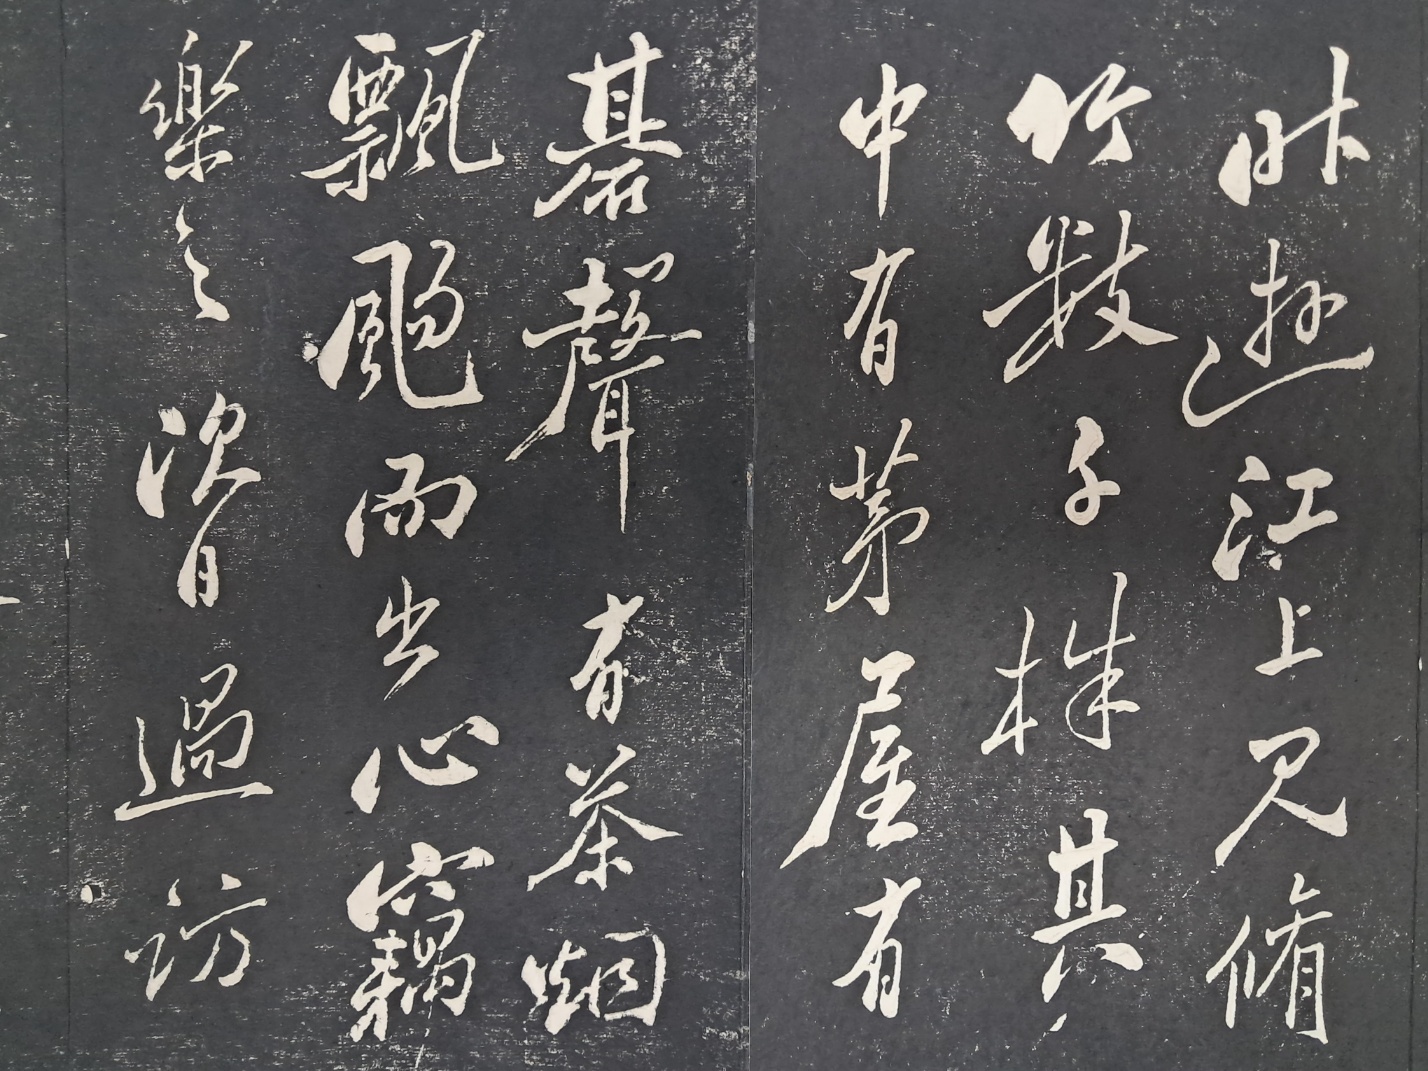 昨遊江上見脩
竹數千株其
中有茅屋有
碁聲有茶烟
飄颺而出心竊
樂之次日過訪